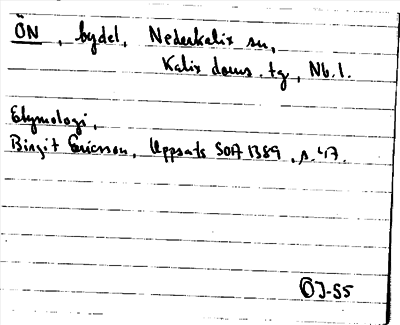 ÖN, bydel, Nederkalix sn,
Kalix doms. tg, Nb. l.
Etymologi,
Birgit Ericsson, Uppsats SOFI 1389, s. 47.
ÖJ-85